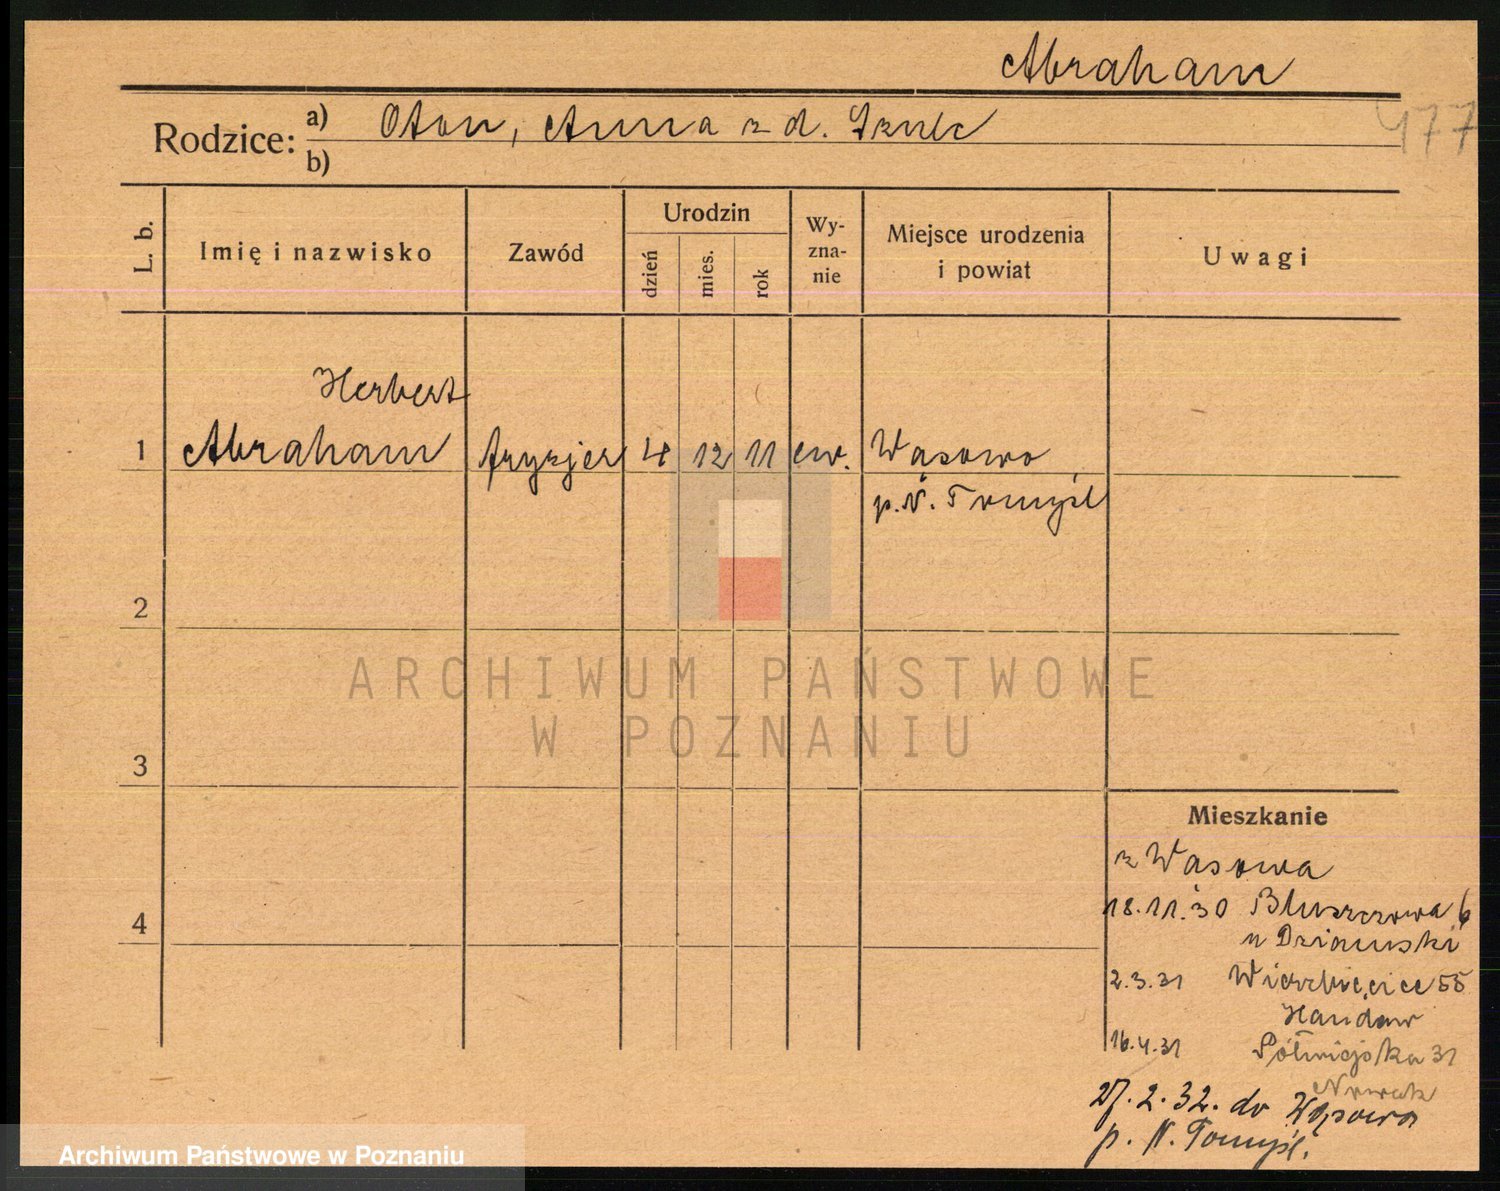 Abraham
477
Rodzice: a) Oton, Anna z d. Szulc
b)
L. b.
Imię i nazwisko
Zawód
Urodzin
dzień
mies.
rok
Wy-
zna-
nie
Miejsce urodzenia
i powiat
Uwagi
Herbert
1 Abraham fryzjer 4 12 11 ew. Wąsowo
p. N. Tomyśl
2
ARCHIWUM PAŃSTWOWE
W POZNANIU
3
Mieszkanie
z Wąsowa
4
18.11.30 Bluszczowa 6
u Dziamski
2.3.31 Wierzbięcice 55
16.4.31 Półwiejska 31
Nowak
27.2.32. do Wąsowa
p. N. Tomyśl.
Archiwum Państwowe w Poznaniu